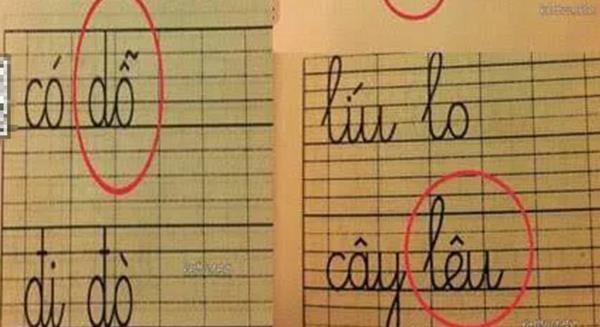 có dỗ
đi đò
líu lo
cây lêu